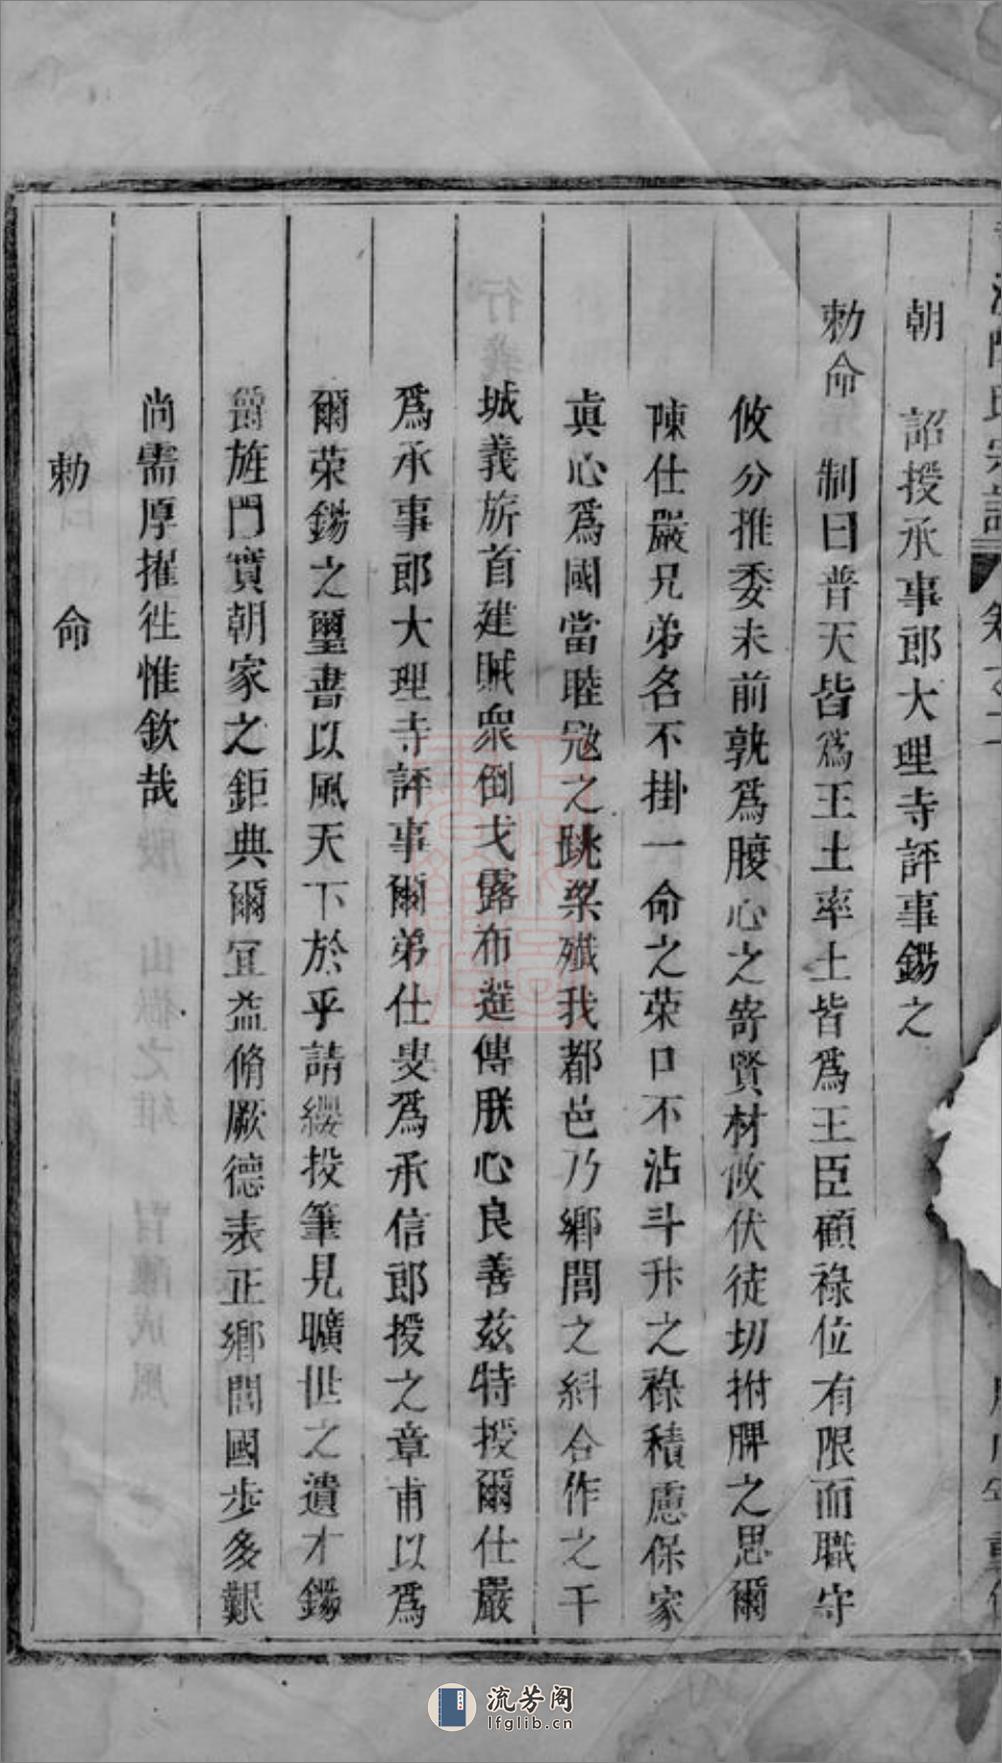 陳氏宗譜 卷之二
朝 詔授承事郎大理寺評事錫之
勅命 制曰普天皆爲王土率土皆爲王臣顧祿位有限而職守
攸分推委未前孰爲腹心之寄賢材攸伏徒切拊脾之思爾
陳仕嚴兄弟名不掛一命之荣口不沾斗升之祿積慮保家
真心爲國當睦冦之跳梁殲我都邑乃鄉閭之糾合作之干
城義旂首建賊衆倒戈露布遥傳朕心良善兹特授爾仕嚴
爲承事郎大理寺評事爾弟仕叟爲承信郎授之章甫以爲
爾荣錫之璽書以風天下於乎請纓投筆見曠世之遺才錫
爵旌門實朝家之鉅典爾宜益脩厥德表正鄉閭國步多艱
尚需厚擢徃惟欽哉
勅 命
流芳阁
lfglib.cn